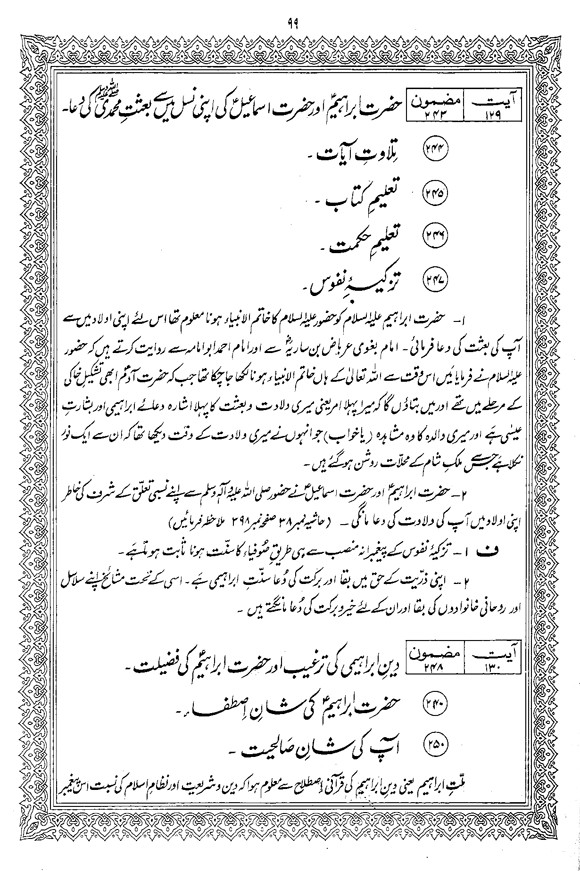 ۹۹
آیت ۱۲۹ مضمون ۲۴۳ حضرت ابراہیمؑ اور حضرت اسماعیلؑ کی اپنی نسل میں سے بعثتِ محمدی ﷺ کی دعا۔
۲۴۴ تلاوتِ آیات ۔
۲۴۵ تعلیمِ کتاب ۔
۲۴۶ تعلیمِ حکمت ۔
۲۴۷ تزکیۂ نفوس ۔
۱۔ حضرت ابراہیم علیہ السلام کو حضور علیہ السلام کا خاتم الانبیاء ہونا معلوم تھا اس لئے اپنی اولاد میں سے
آپ کی بعثت کی دعا فرمائی۔ امام بغوی عرباض بن ساریہؓ سے اور امام احمد ابوامامہ سے روایت کرتے ہیں کہ حضور
علیہ السلام نے فرمایا میں اس وقت سے اللہ تعالیٰ کے ہاں خاتم الانبیاء ہونا لکھا جا چکا تھا جب کہ حضرت آدمؑ ابھی تشکیلِ خاکی
کے مرحلے میں تھے اور میں بتاؤں گا کہ میرا پہلا امر یعنی میری ولادت و بعثت کا پہلا اشارہ دعائے ابراہیمی اور بشارتِ
عیسیٰ ہے اور میری والدہ کا وہ مشاہدہ (یا خواب) جو انہوں نے میری ولادت کے وقت دیکھا تھا کہ ان سے ایک نور
نکلا ہے جس سے ملکِ شام کے محلات روشن ہو گئے ہیں ۔
۲۔ حضرت ابراہیمؑ اور حضرت اسماعیلؑ نے حضور صلی اللہ علیہ وآلہ وسلم سے اپنے نسبی تعلق کے شرف کی خاطر
اپنی اولاد میں آپ کی ولادت کی دعا مانگی ۔ (حاشیہ نمبر ۳۸ صفحہ نمبر ۲۹۸ ملاحظہ فرمائیں)
ف ۱ ۔ تزکیۂ نفوس کے پیغمبرانہ منصب سے ہی طریقِ صوفیاء کا سنّت ہونا ثابت ہوتا ہے ۔
۲ ۔ اپنی ذریّت کے حق میں بقا اور برکت کی دُعا سنّتِ ابراہیمی ہے ۔ اسی کے تحت مشائخ اپنے سلاسل
اور روحانی خانوادوں کی بقا اور ان کے لئے خیر و برکت کی دُعا مانگتے ہیں ۔
آیت ۱۳۰ مضمون ۲۴۸ دینِ ابراہیمی کی ترغیب اور حضرت ابراہیمؑ کی فضیلت ۔
۲۴۰ حضرت ابراہیمؑ کی شانِ اصطفاء ۔
۲۵۰ آپ کی شانِ صالحیت ۔
ملّتِ ابراہیم یعنی دینِ ابراہیم کی قرآنی اصطلاح سے معلوم ہوا کہ دین و شریعت اور نظامِ اسلام کی نسبت اس پیغمبر